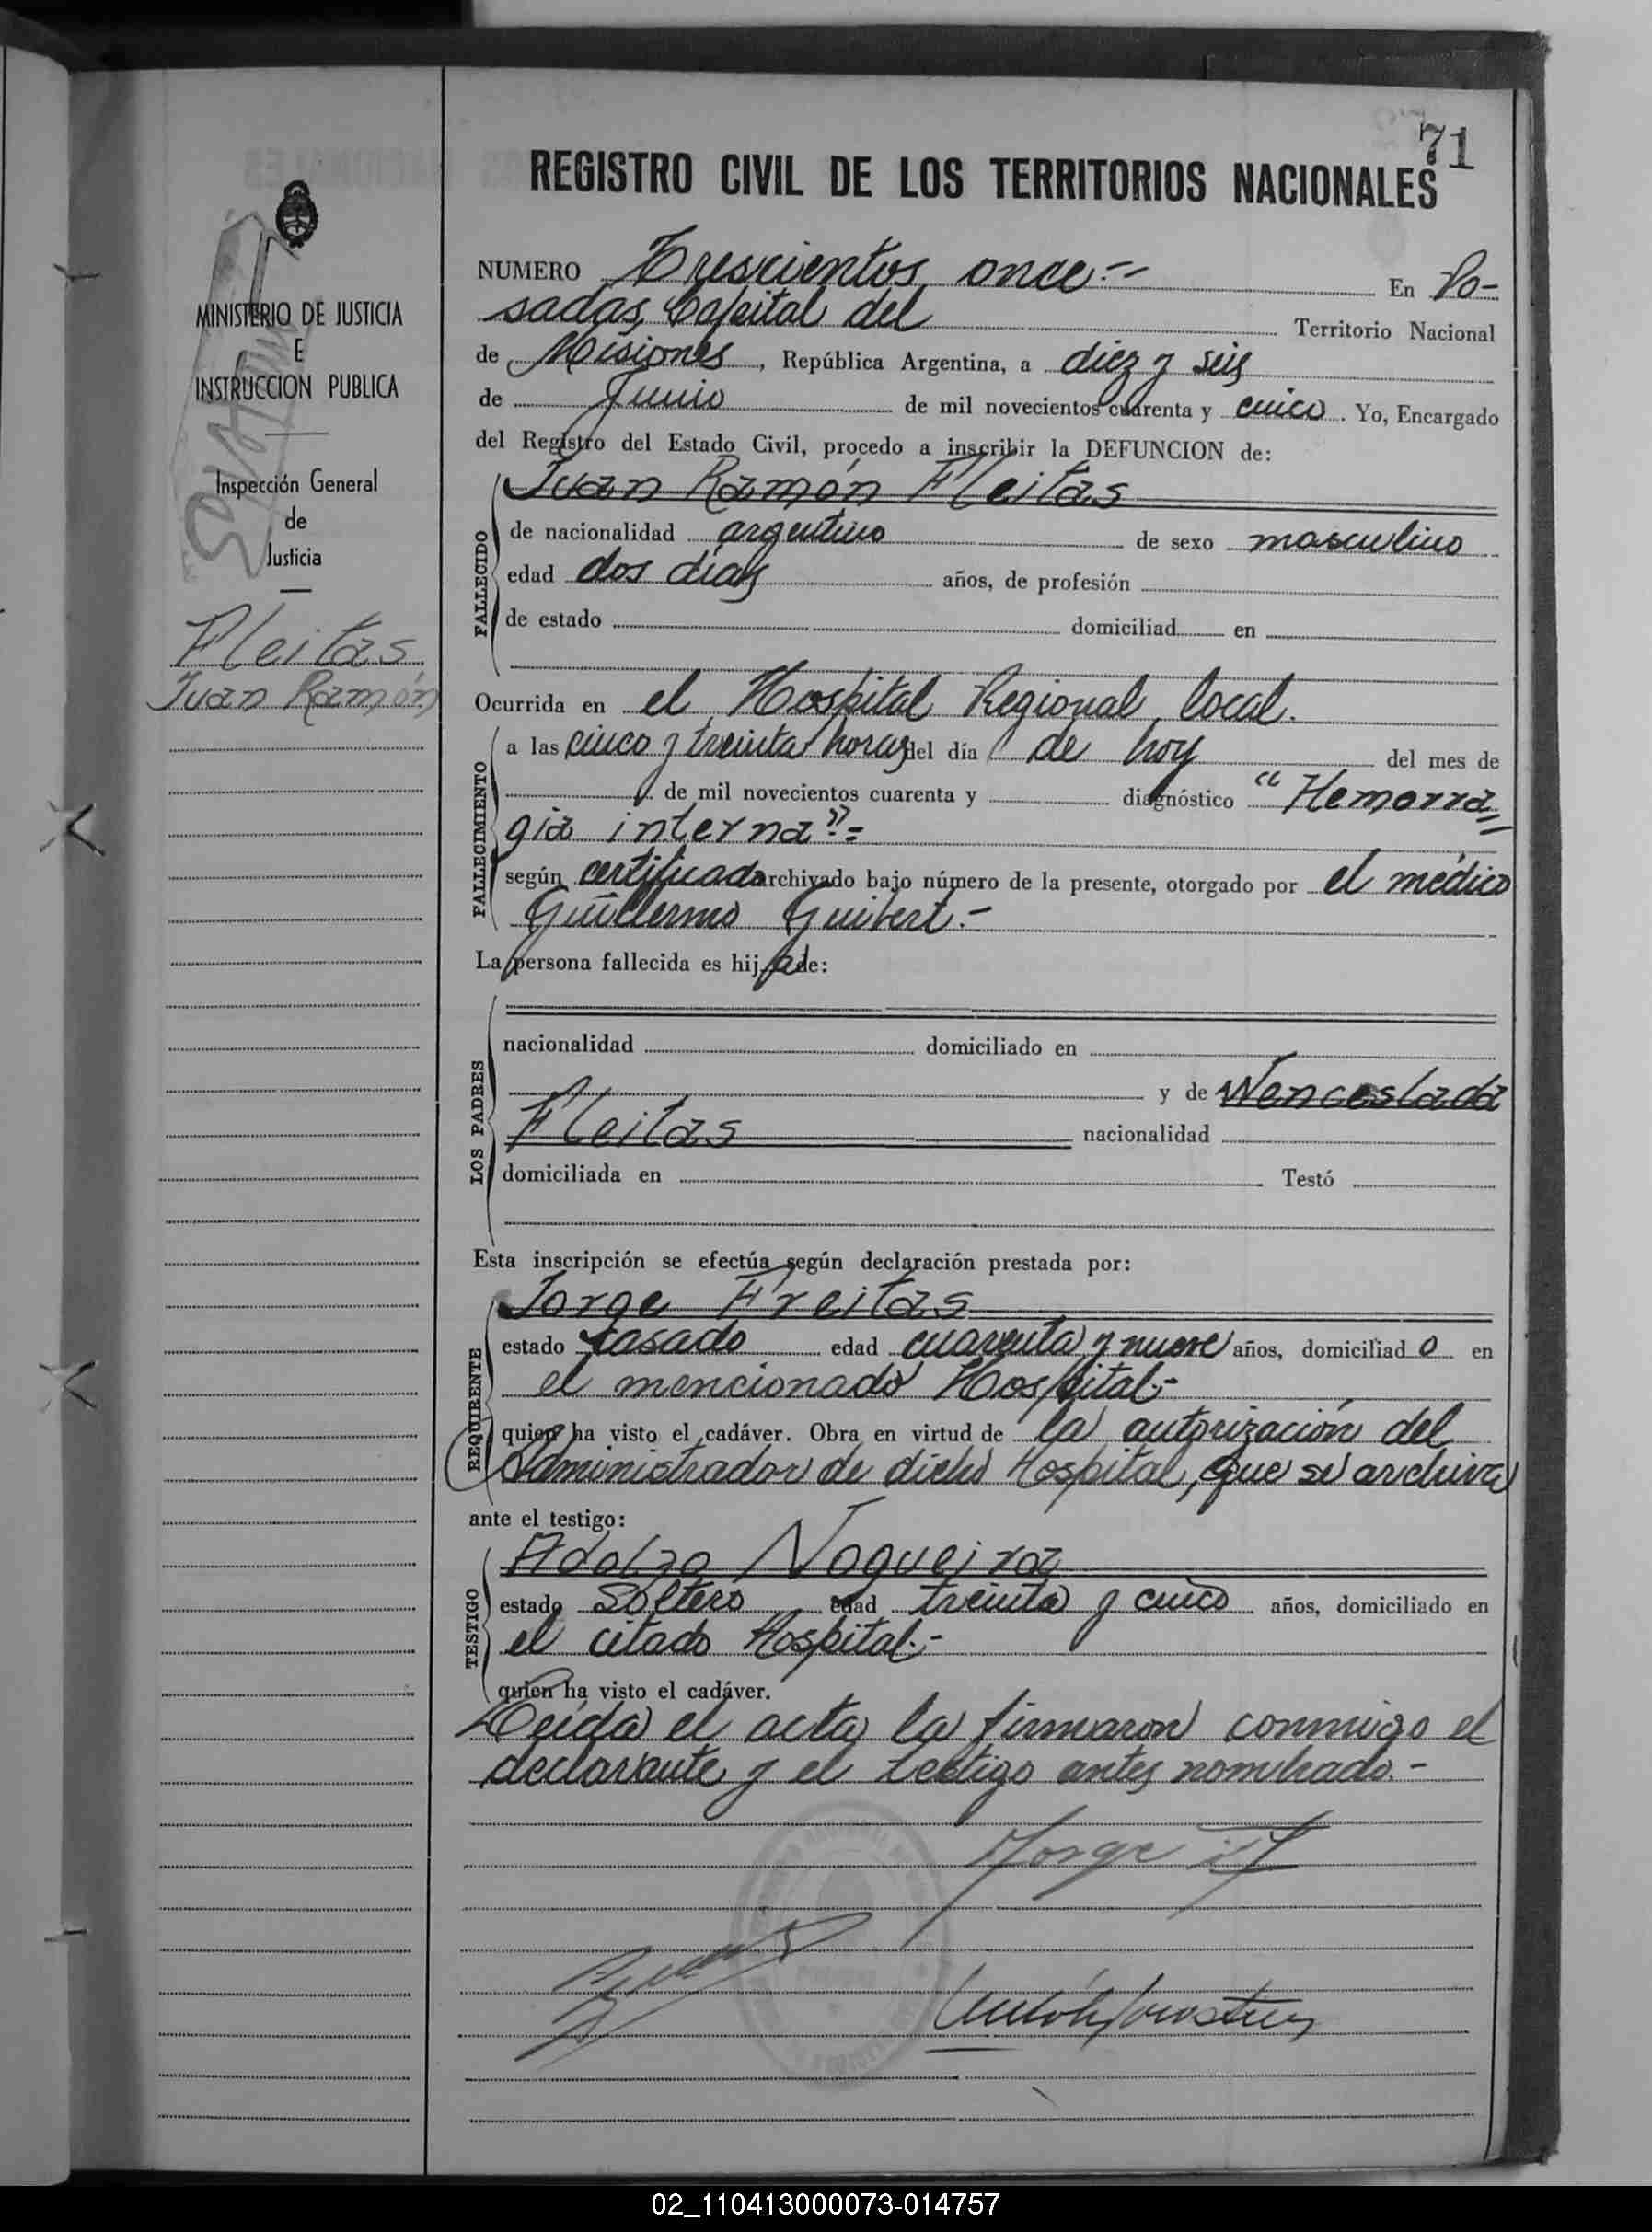 71
REGISTRO CIVIL DE LOS TERRITORIOS NACIONALES
MINISTERIO DE JUSTICIA
E
INSTRUCCION PUBLICA
Inspección General
de
Justicia
Fleitas
Juan Ramón
NUMERO Trescientos once.- En Po-
sadas, Capital del Territorio Nacional
de Misiones, República Argentina, a diez y seis
de Junio de mil novecientos cuarenta y cinco. Yo, Encargado
del Registro del Estado Civil, procedo a inscribir la DEFUNCION de:
Juan Ramón Fleitas
FALLECIDO
de nacionalidad argentino de sexo masculino
edad dos días años, de profesión
de estado domiciliad en
Ocurrida en el Hospital Regional, local.
FALLECIMIENTO
a las cinco y treinta horas del día de hoy del mes de
de mil novecientos cuarenta y diagnóstico "Hemorra=
gia interna".=
según certificado archivado bajo número de la presente, otorgado por el médico
Guillermo Guibert.-
La persona fallecida es hijo de:
LOS PADRES
nacionalidad domiciliado en
y de Wenceslada
Fleitas nacionalidad
domiciliada en Testó
Esta inscripción se efectúa según declaración prestada por:
Jorge Freitas
REQUIRENTE
estado casado edad cuarenta y nueve años, domiciliad o en
el mencionado Hospital.-
quien ha visto el cadáver. Obra en virtud de la autorización del
Administrador de dicho Hospital, que se archiva
ante el testigo:
Adolfo Nogueira
TESTIGO
estado Soltero edad treinta y cinco años, domiciliado en
el citado Hospital.-
quien ha visto el cadáver.
Leída el acta, la firmaron conmigo el
declarante y el testigo antes nombrado.-
Jorge
02_110413000073-014757